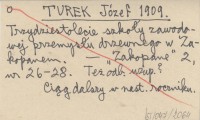 TUREK Józef 1909.
Trzydziestolecie szkoły zawodo-
wej przemysłu drzewnego w Za-
kopanem. — "Zakopane" 2,
nr. 26-28. Też odb. uzup.?
Ciąg dalszy w nast. roczniku.